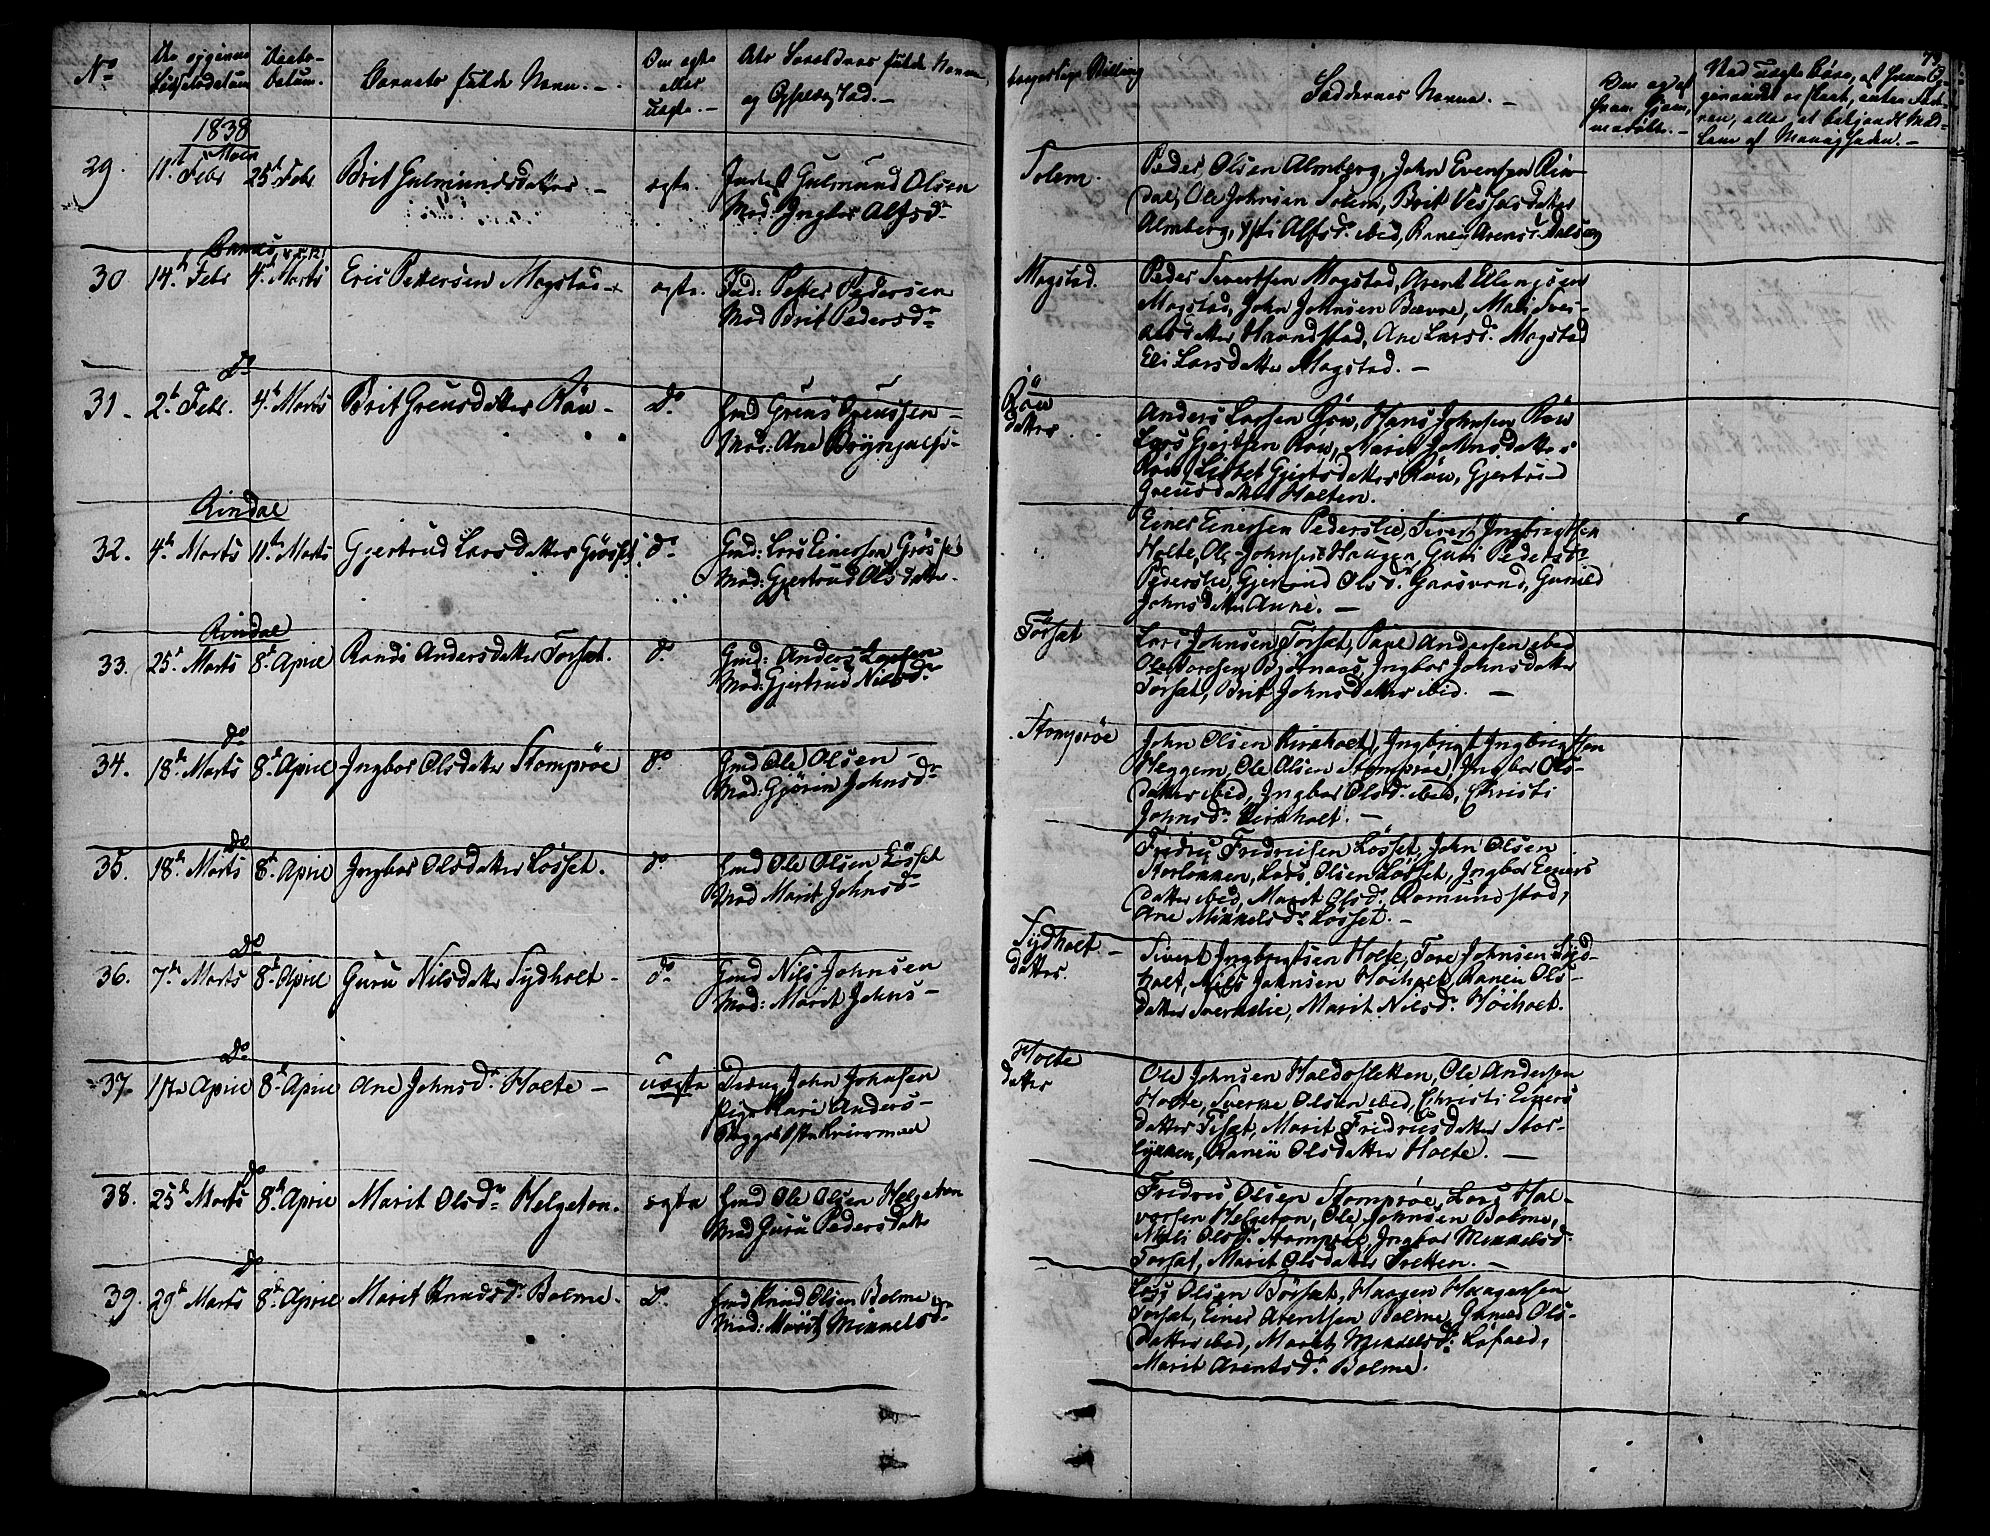 No
Barnets fulde Navn. -
Om ægte
eller
uægte. -
og Opholdssted. -
borgerlige Stilling
Faddernes Navne. -
73.
1838
29. 11t Febr 25t Febr Brit Gulmundsdatter. - ægte. Gulmund Olsen
Mod: Ingbor Alfsdr
Solem.
Peder Olsen Almberg, John Evensen Rin-
dal, Ole Johnsen Solem, Brit Vesselsdatter
Almberg, Alfsd. ibid, Ranei Arensd.
30 14t Febr 4t Marts Eric Pettersen Mogstad ægte. Fad: Petter Pedersen
Mod Brit Pedersdr
Mogstad.
Peder Sivertsen Mogstad, Arent Ellingsen
Mogstad, John Johnsen Bævre, Mali Siver
datter Haandstad, Ane Larsd. Mogstad
Eli Larsdatter Mogstad. -
Do
31 - 2t Febr. 4t Marts Brit Greusdatter Röw - Do Gmd Greus Greussen -
Mod: Ane Brynjulfs-
Röw
datter
Anders Larsen Röw, Hans Johnsen Röw
Lars Gjertsen Röw, Marit Johnsdatter
Röw, Lisbet Gjertsdatter Röw, Gjertru-d
Greusdatter Holten.
Rindal
32. 4t Marts 11t Marts Gjertrud Larsdatter Grösset do Gmd: Lars Einersen Grösset
Mod: Gjertrud Olsdatter.
Einer Einersen Pederslie, Sivert Ingbrigtsen
Holte, Ole Johnsen Haagen, Guri Pedersdr
Pederslie, Gjertrud Olsd. Gaasvand, Gunild
Johnsdatter Aune. -
Rindal
33. 25t Marts 8t April Randi Andersdatter Torset. do Gmd: Anders Larsen
Mod: Gjertrud Nilsdr
Torset
Lars Johnsen Torset, Paul Andersen ibid
Ole Toresen Björnaas, Ingbor Johnsdatter
Torset, Brit Johnsdatter ibid. -
do
34. 18t Marts 8t April Ingbor Olsdatter Stomprøe do Gmd Ole Olsen -
Mod: Gjörin Johnsdr
Stomprøe
John Olsen Kirkholt, Ingbrigt Ingbrigtsen
Heggem, Ole Olsen Stomprøe, Ingbor Ols-
datter ibid, Ingbor Olsd. ibid, Christi
Johnsdr Kirkholt. -
Do
35. 18t Marts 8t April Ingbor Olsdatter Løsset. do Gmd Ole Olsen Løsset
Mod Marit Johnsdr
Fredric Fredricsen Løsset, John Olsen
Storløkken, Lars Olsen Løsset, Ingbor Einers
datter ibid, Marit Olsd. Romundstad,
Ane Mikkelsdr Løsset. -
Do
36. 7t Marts 8t April Guru Nilsdatter Sydholt - do Gmd Nils Johnsen
Mod: Marit Johns-
Sydholt -
datter.
Sivert Ingbrigtsen Holte, Tore Johnsen Syd-
holt, Nils Johnsen Høiholt, Ranei Ols-
datter Sverkelie, Marit Nilsdr Høiholt.
Do
37. 1ste April 8t April Ane Johnsdr Holte - uægte Dreng John Johnsen
Pige Kari Anders-
Holte
datter
Ole Johnsen Haldosletten, Ole Andersen
Holte, Sverke Olsen ibid, Christi Einers
datter Tiset, Marit Fredricsdatter Stor-
lykken, Ranei Olsdatter Holte. -
do
38. 25t Marts 8t April Marit Olsdr Helgeton. ægte Gmd Ole Olsen Helgeton
Mod Guru Pedersdatter
Fredric Olsen Stomprøe, Lars Hal-
vorsen Helgeton, Ole Johnsen Bolme,
Mali Olsd. Stomprøe, Ingbor Mikkelsd.
Torset, Marit Olsdatter Tretten. -
do
39. 29t Marts 8t April Marit Knudsdr Bolme. D. Gmd Knud Olsen Bolme
Mod: Marit Mikkelsdr
Lars Olsen Börset, Haagen Haagensen
Torset, Einer Arentsen Bolme, Gunild Ols-
datter ibid, Marit Mikkelsd. Løfald,
Marit Arentsdr Bolme.